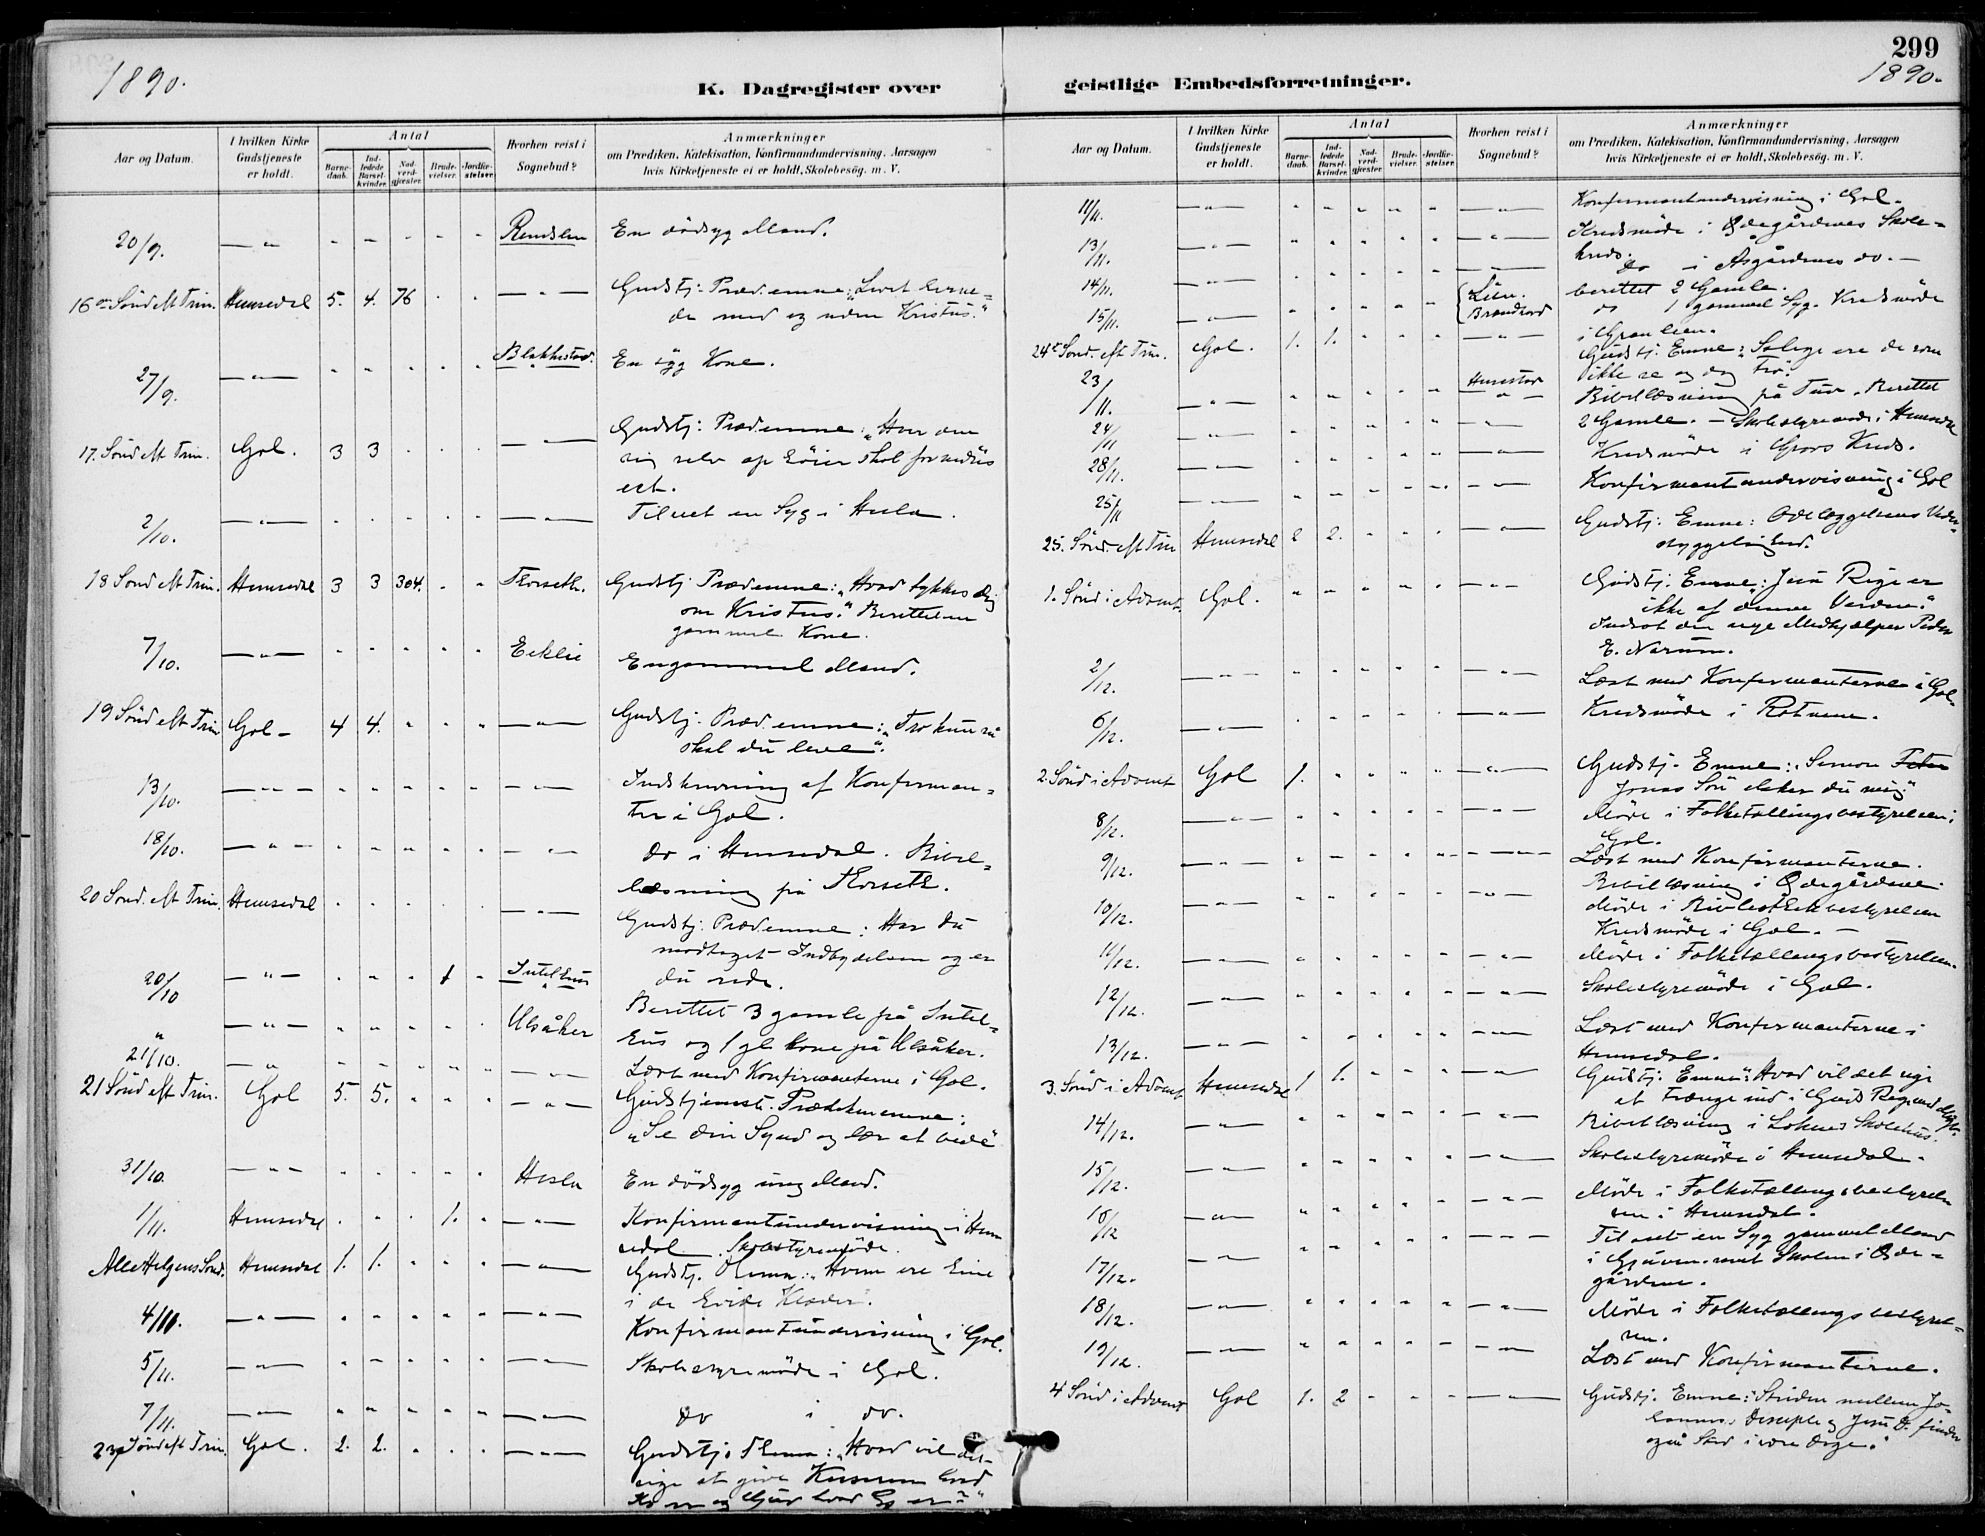 299
1890.
1890.
K. Dagregister over
geistlige Embedsforretninger.
Aar og Datum.
I hvilken Kirke Gudstjeneste er holdt.
Antal
Barnedaab.
Indledede Barselkvinder.
Nadverdgjæster.
Brudevielser.
Jordfæstelser.
Hvorhen reist i Sognebud?
Anmærkninger
om Prædiken, Katekisation, Konfirmandundervisning, Aarsagen
hvis Kirketjeneste ei er holdt, Skolebesøg. m. V.
20/9. En dödsyg Mand.
16de Sönd eft Trin. Hemsedal 5. 4. 76 Gudstj: Præd.emne: "Livet
med og uden Kristus."
27/9. En syg Kone.
17. Sönd eft Trin. Gol. 3 3 Gudstj: Præd.emne: "Hver som
sig selv skal fornedres
2/10. en Syg i Hesla.
18 Sönd eft Trin. Hemsedal 3 3 304. Thorseth. Gudstj: Præd.emne: "Hvad tykkes dig
om Kristus." Berettet en
gammel Kone.
7/10. Eeklie En gammel Mand.
19 Sönd eft Trin Gol 4 4. Gudstj: Præd.emne: "Tro kun så
skal du leve".
13/10. Indskrivning af Konfirman-
ter i Gol.
18/10. do i Hemsedal. Bibel-
læsning på Thorseth.
20 Sönd. eft Trin. Hemsedal Gudstj: Præd.emne: Har du
modtaget Indbydelsen og er
du rede.
20/10 1 Berettet 3 gamle på
" Ulsåker og 1 gl. kone på Ulsåker.
21/10. Læst med Konfirmanterne i Gol.
21 Sönd eft Trin. Gol 5. 5. Gudstjeneste. Prædikenemne:
"Se din Synd og lær at bede"
31/10. Hesla En dödsyg ung Mand.
1/11. Hemsedal 1. Konfirmantundervisning i Hem
sedal. Skolestyremöde.
Alle Helgens Sönd. Hemsedal 1. 1. Gudstj. "Hvem ere
i de hvide Klæder".
4/11. Konfirmantundervisning i Gol.
5/11. Skolestyremöde i Gol.
7/11. do i do.
23 Sönd eft Trin. Gol. 2. 2. Gudstj: "Hvad vil det
sige at give
Aar og Datum.
I hvilken Kirke Gudstjeneste er holdt.
Antal
Barnedaab.
Indledede Barselkvinder.
Nadverdgjæster.
Brudevielser.
Jordfæstelser.
Hvorhen reist i Sognebud?
Anmærkninger
om Prædiken, Katekisation, Konfirmandundervisning, Aarsagen
hvis Kirketjeneste ei er holdt, Skolebesøg. m. V.
11/11. Konfirmantundervisning i Gol.
13/11. Kredsmöde i Ödegårdenes Skole-
kreds.
14/11. do i Åsgårdenes do.
15/11. Lien. berettet 2 Gamle.
do 1 gammel Syg. Kredsmöde
i Granlien.
24de Sönd. eft Trin. Gol. 1. 1. Gudstj: Emne: "Salige ere de som
ikke se og dog tro".
23/11. Bibellæsning på Tuv. Berettet
24/11 2 Gamle. Skolestyremöde i Hemsedal
28/11. Kredsmöde i Grovs Kreds.
25/11 Konfirmantundervisning i Gol
25. Sönd. eft Trin Hemsedal 2 2. Gudstj: Emne: Ödelæggelsens Veder-
styggelighed.
1. Sönd i Advent. Gol. Gudstj: Emne: "Jesu Rige er
ikke af denne Verden."
Indsat den nye Medhjælper Peder
E. Narum.
2/12. Læst med Konfirmanterne i Gol.
6/12. Kredsmöde i Rotneim.
2. Sönd i Advent Gol 1. Gudstj. Emne: "Simon
Jonas Sön elsker du mig"
8/12. Möde i Folketællingsbestyrelsen i
Gol.
9/12. Læst med Konfirmanterne.
Bibellæsning i Ödegårdene.
10/12. Möde i Bibliothekbestyrelsen
Kredsmöde i Gol.
11/12. Möde i Folketællingsbestyrelsen.
12/12. Skolestyremöde i Gol.
13/12. Læst med Konfirmanterne i
Hemsedal.
3. Sönd i Advent Hemsedal 1 1. Gudstj. Emne: "Hvad vil det sige
at trænge ind i Guds Rige med
14/12. Bibellæsning i Skolehus.
15/12. Skolestyremöde i Hemsedal.
16/12 Möde i Folketællingsbestyrel
sen i Hemsedal.
17/12. en Syg gammel Mand
i Skolen i Öde-
gårdene.
18/12. Möde i Folketællingsbestyrel-
sen.
19/12. Læst med Konfirmanterne.
4 Sönd i Advent Gol 1. 2 Gudstj. Emne: "Striden mellem Jo-
hannes Disciple og Jesu D. finder
også Sted i vore Dage."